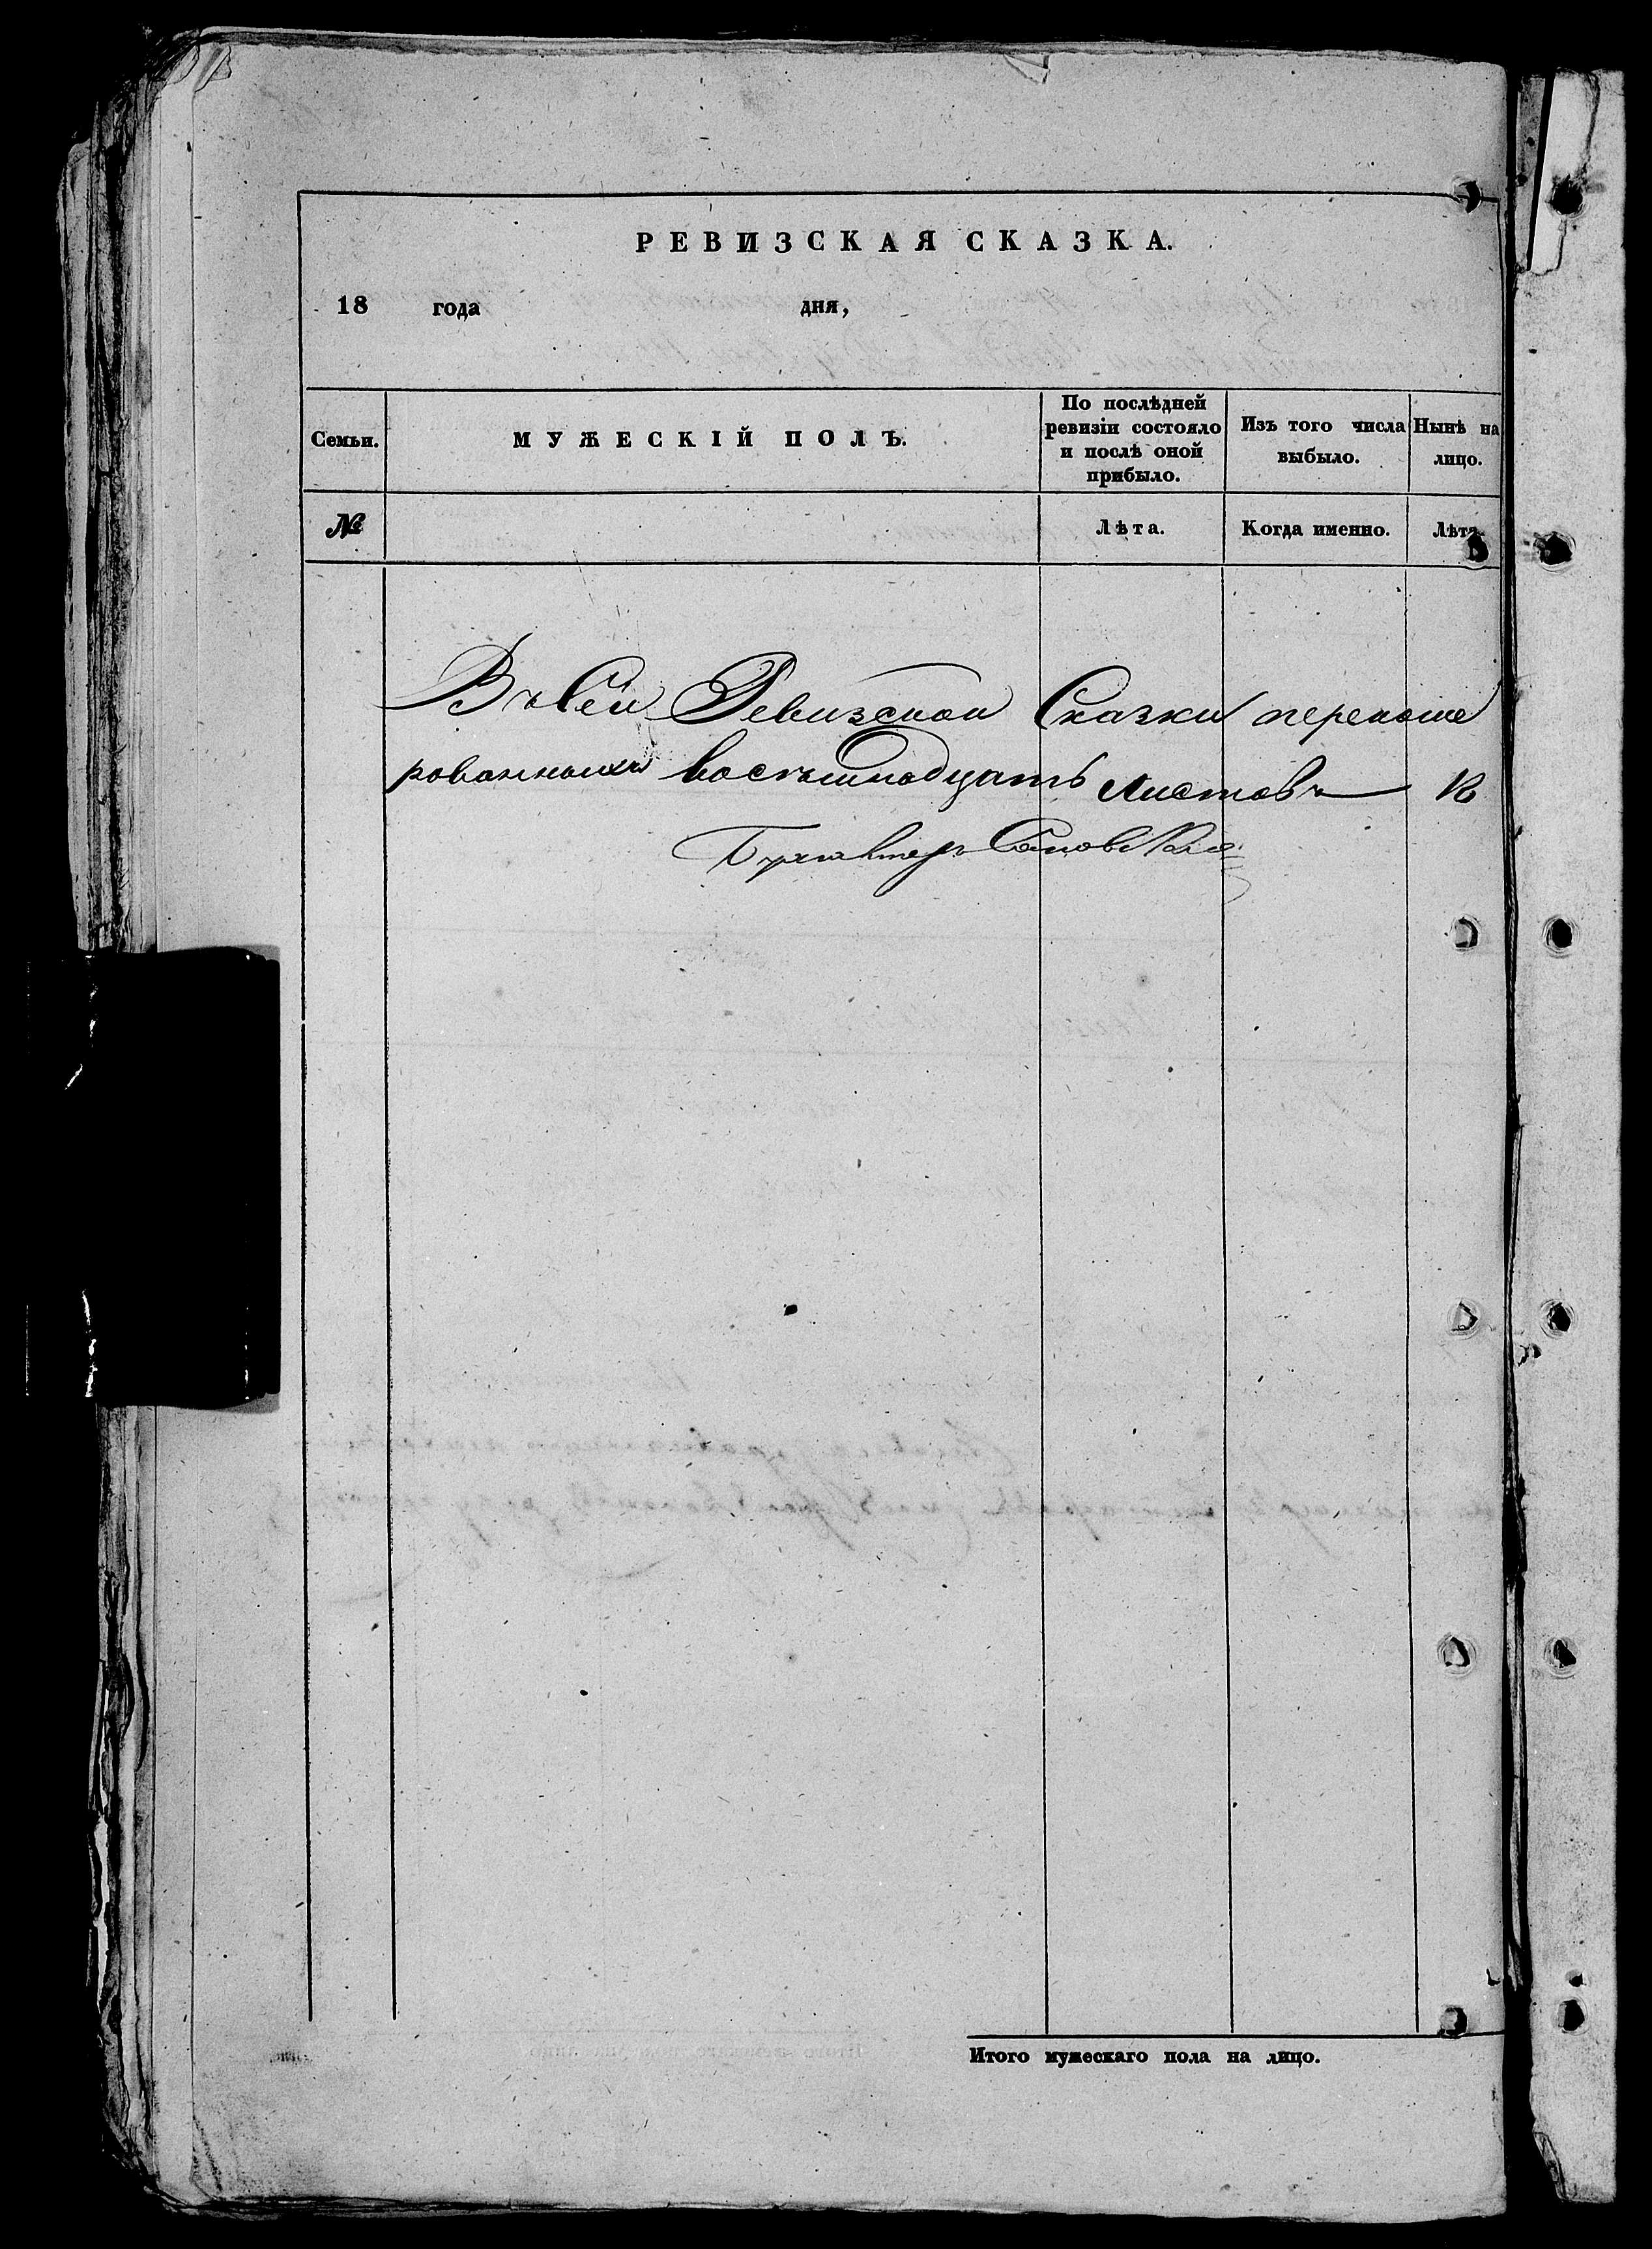 РЕВИЗСКАЯ СКАЗКА.
18 года дня,
Семьи.
МУЖЕСКІЙ ПОЛЪ.
По послѣдней
ревизіи состояло
и послѣ оной
прибыло.
Изъ того числа
выбыло.
Нынѣ на
лицо.
№
Лѣта.
Когда именно.
Лѣта.
Въ Сей Ревизской Сказки перенуме
рованныхъ восемьнадцать Листовъ
Бухгалтеръ
Итого мужескаго пола на лицо.